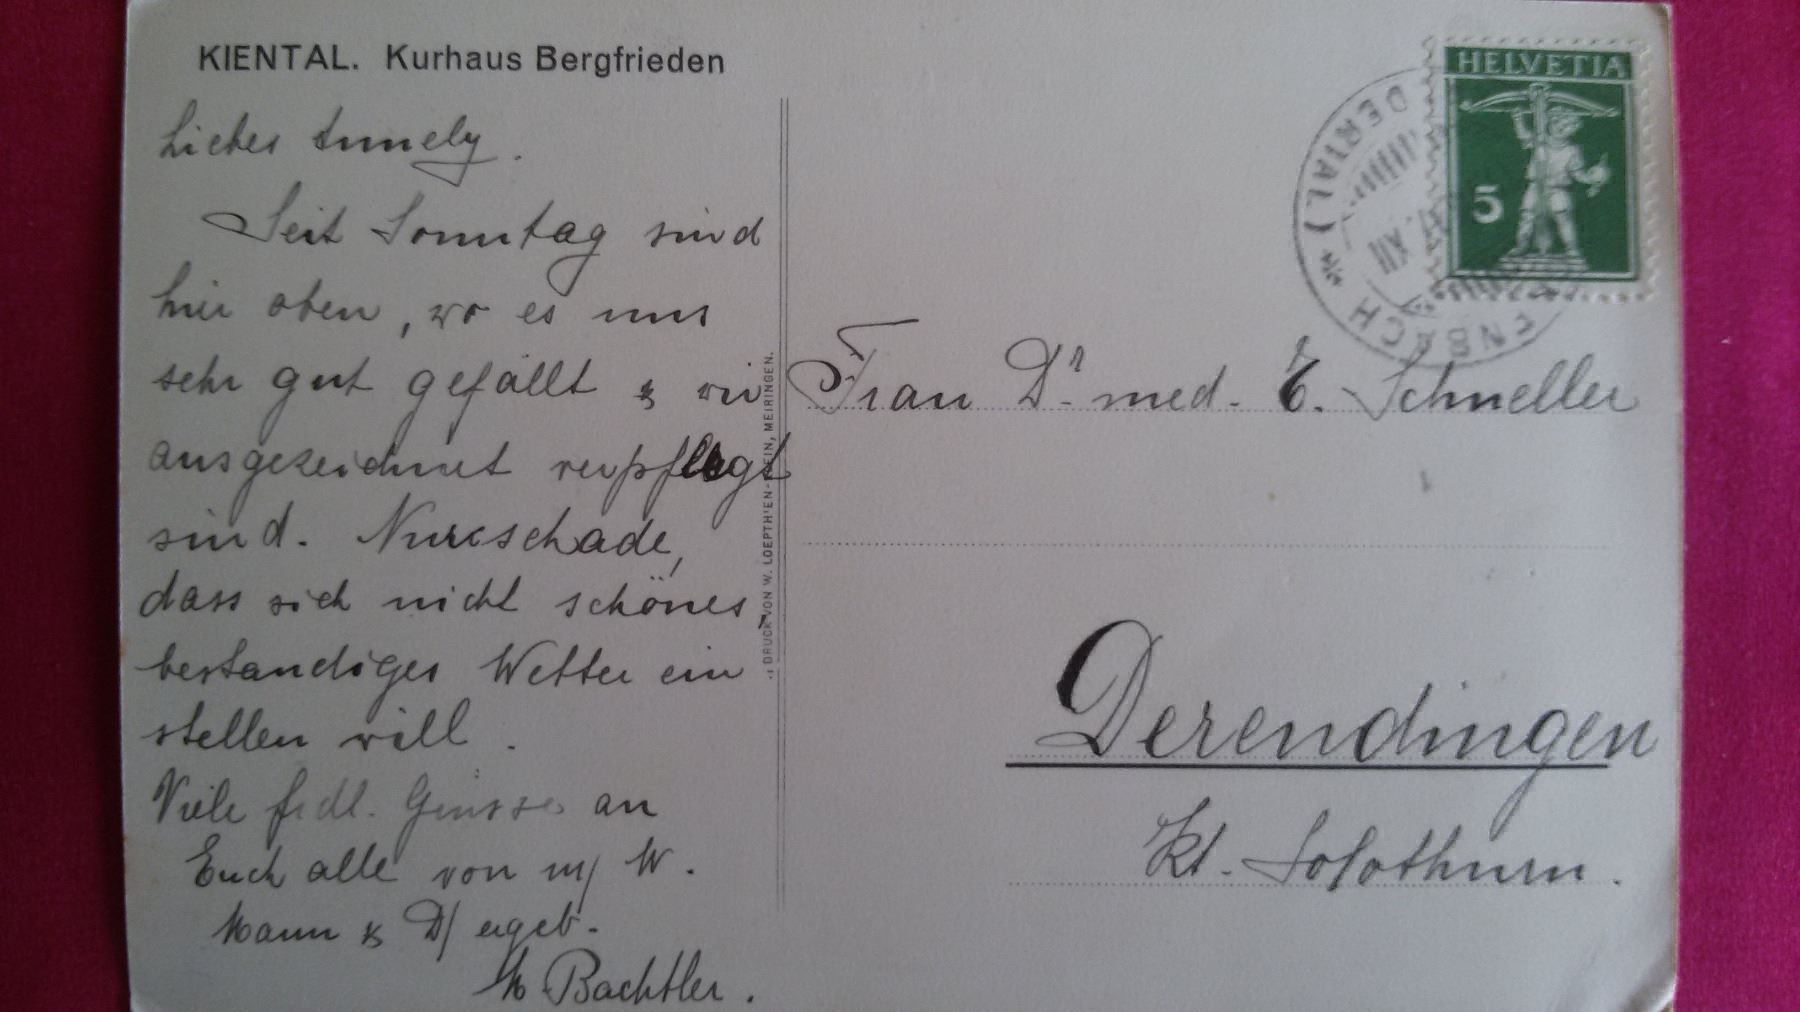 KIENTAL. Kurhaus Bergfrieden
Liebes Annely.
Seit Sonntag sind
hier oben, wo es uns
sehr gut gefällt & wir
ausgezeichnet verpflegt
sind. Nur schade,
dass sich nicht schönes,
beständiges Wetter ein
stellen will.
Viele frdl. Grüsse an
Euch alle von m/ W.
Mann & D/ ergeb.
Bachtler.
DRUCK VON W. LOEPTHIEN-KLEIN, MEIRINGEN.
HELVETIA
5
DERTAL)
XII
ENBACH
Frau Dr. med. E. Schneller
Derendingen
Kt. Solothurn.